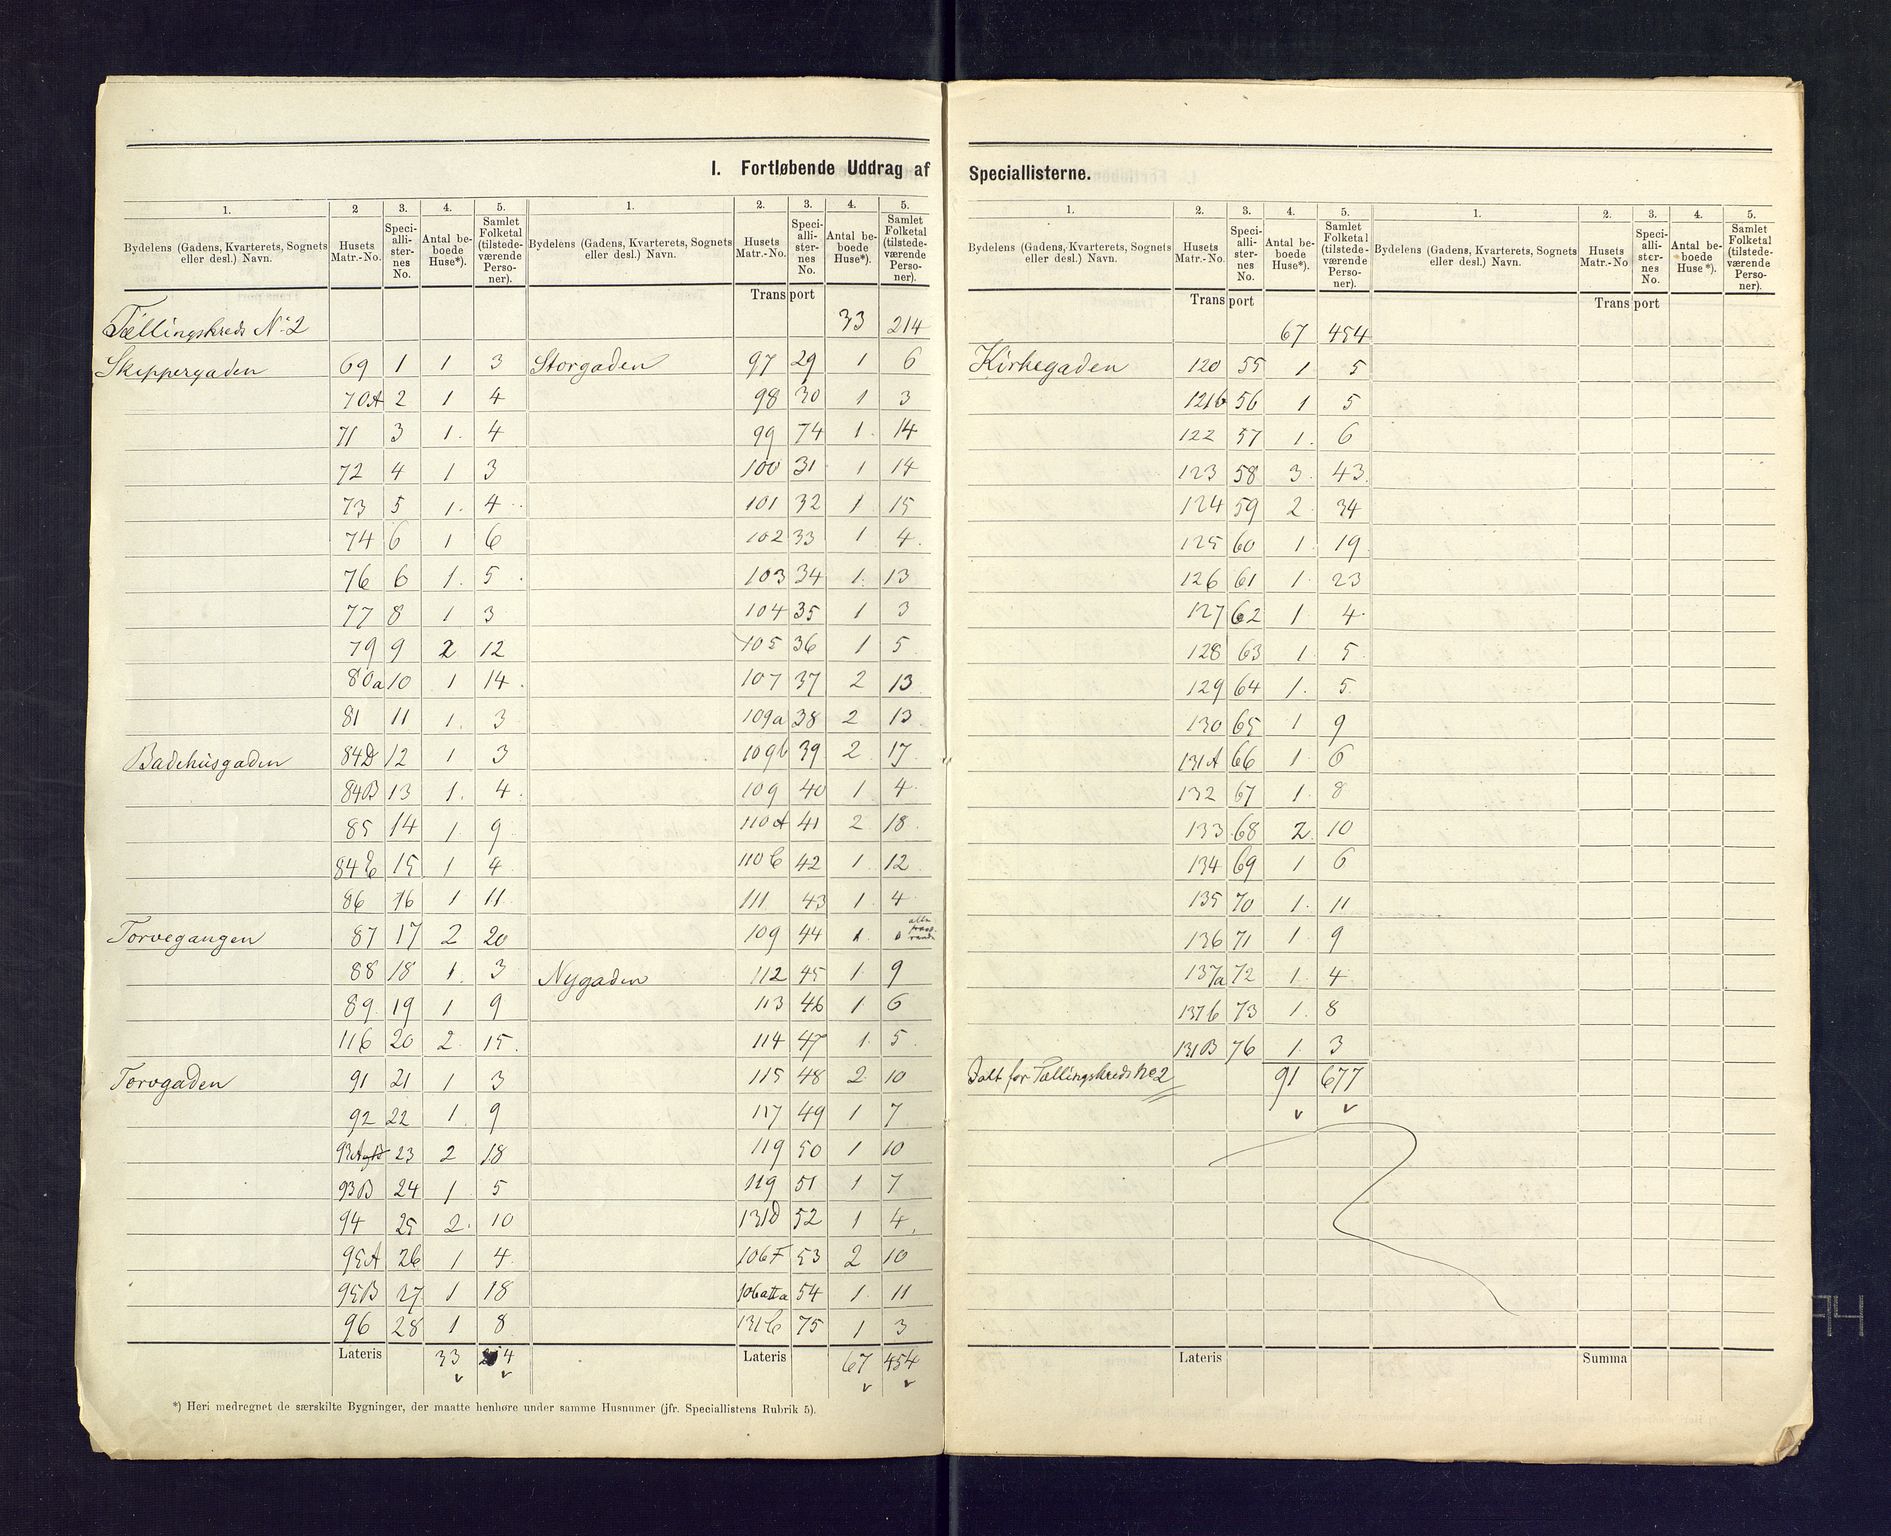 I. Fortløbende Uddrag af Speciallisterne.
1. 2 3. 4. 5. 1. 2. 3. 4. 5.
Bydelens (Gadens, Kvarterets, Sognets eller desl.) Navn. Husets Matr.-No. Speciallisternes No. Antal beboede Huse*). Samlet Folketal (tilstedeværende Personer). Bydelens (Gadens, Kvarterets, Sognets eller desl.) Navn. Husets Matr.-No. Speciallisternes No. Antal beboede Huse*). Samlet Folketal (tilstedeværende Personer).
Transport
Tællingskreds No 2 33 214
Skippergaden 69 1 1 3 Storgaden 97 29 1 6
70A 2 1 4 98 30 1 3
71 3 1. 4 99 74 1. 14
72 4 1 3 100 31 1 14
73 5 1. 4 101 32 1 15
74 6 1 6 102 33 1 4.
76 6 1. 5 103 34 1. 13
77 8 1 3 104 35 1 3
79 9 2 12 105 36 1 5
80a 10 1 14 107 37 2 13
81 11 1. 3 109a 38 2 13.
Badehusgaden 84D 12 1 3 109b 39 2 17
84B 13 1. 4 109 40 1 4
85 14 1. 9 110A 41 2 18
84C 15 1 4 110C 42 1. 12
86 16 1 11 111 43 1. 4
Torvegangen 87 17 2 20 109 44 1. 0
88 18 1. 3 Nygaden 112 45 1 9
89 19 1 9 113 46 1 6
116 20 2. 15. 114 47 1. 5
Torvgaden 91 21 1 3 115 48 2 10
92 22 1. 9 117 49 1 7
93A 23 2 18 119 50 1 10
93B 24 1 5 119 51 1 7
94 25 2. 10 131D 52 1 4
95A 26 1 4 106F 53 2 10
95B 27 1 18 54 1. 11
96 28 1 8 131C 75 1 3
Lateris 33 Lateris 67 454
*) Heri medregnet de særskilte Bygninger, der maatte henhøre under samme Husnumer (jfr. Speciallistens Rubrik 5).
1. 2. 3. 4. 5. 1. 2. 3. 4. 5.
Bydelens (Gadens, Kvarterets, Sognets eller desl.) Navn. Husets Matr.-No. Speciallisternes No. Antal beboede Huse*). Samlet Folketal (tilstedeværende Personer). Bydelens (Gadens, Kvarterets, Sognets eller desl.) Navn. Husets Matr.-No Speciallisternes No. Antal beboede Huse*). Samlet Folketal (tilstedeværende Personer).
Transport Transport
67 454
Kirkegaden 120 55 1 5
121b 56 1 5
122 57 1. 6
123 58 3. 43
124 59 2. 34
125 60 1. 19
126 61 1. 23
127 62 1. 4
128 63 1. 5
129 64 1. 5
130 65 1 9
131A 66 1 6
132 67 1. 8
133 68 2. 10
134 69 1 6
135 70 1. 11
136 71 1. 9
137a 72 1. 4
137b 73 1. 8
131B 76 1. 3
Ialt for Tællingskreds No 2 91 677
Lateris Summa